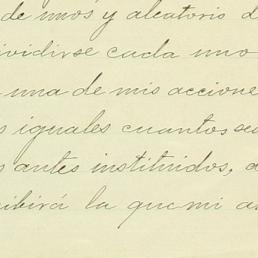 de unos y aleatoris d
ividirse cada uno
una de mis accione
s iguales cuantos sea
s antes instituidos, a
cibirá la que mi a